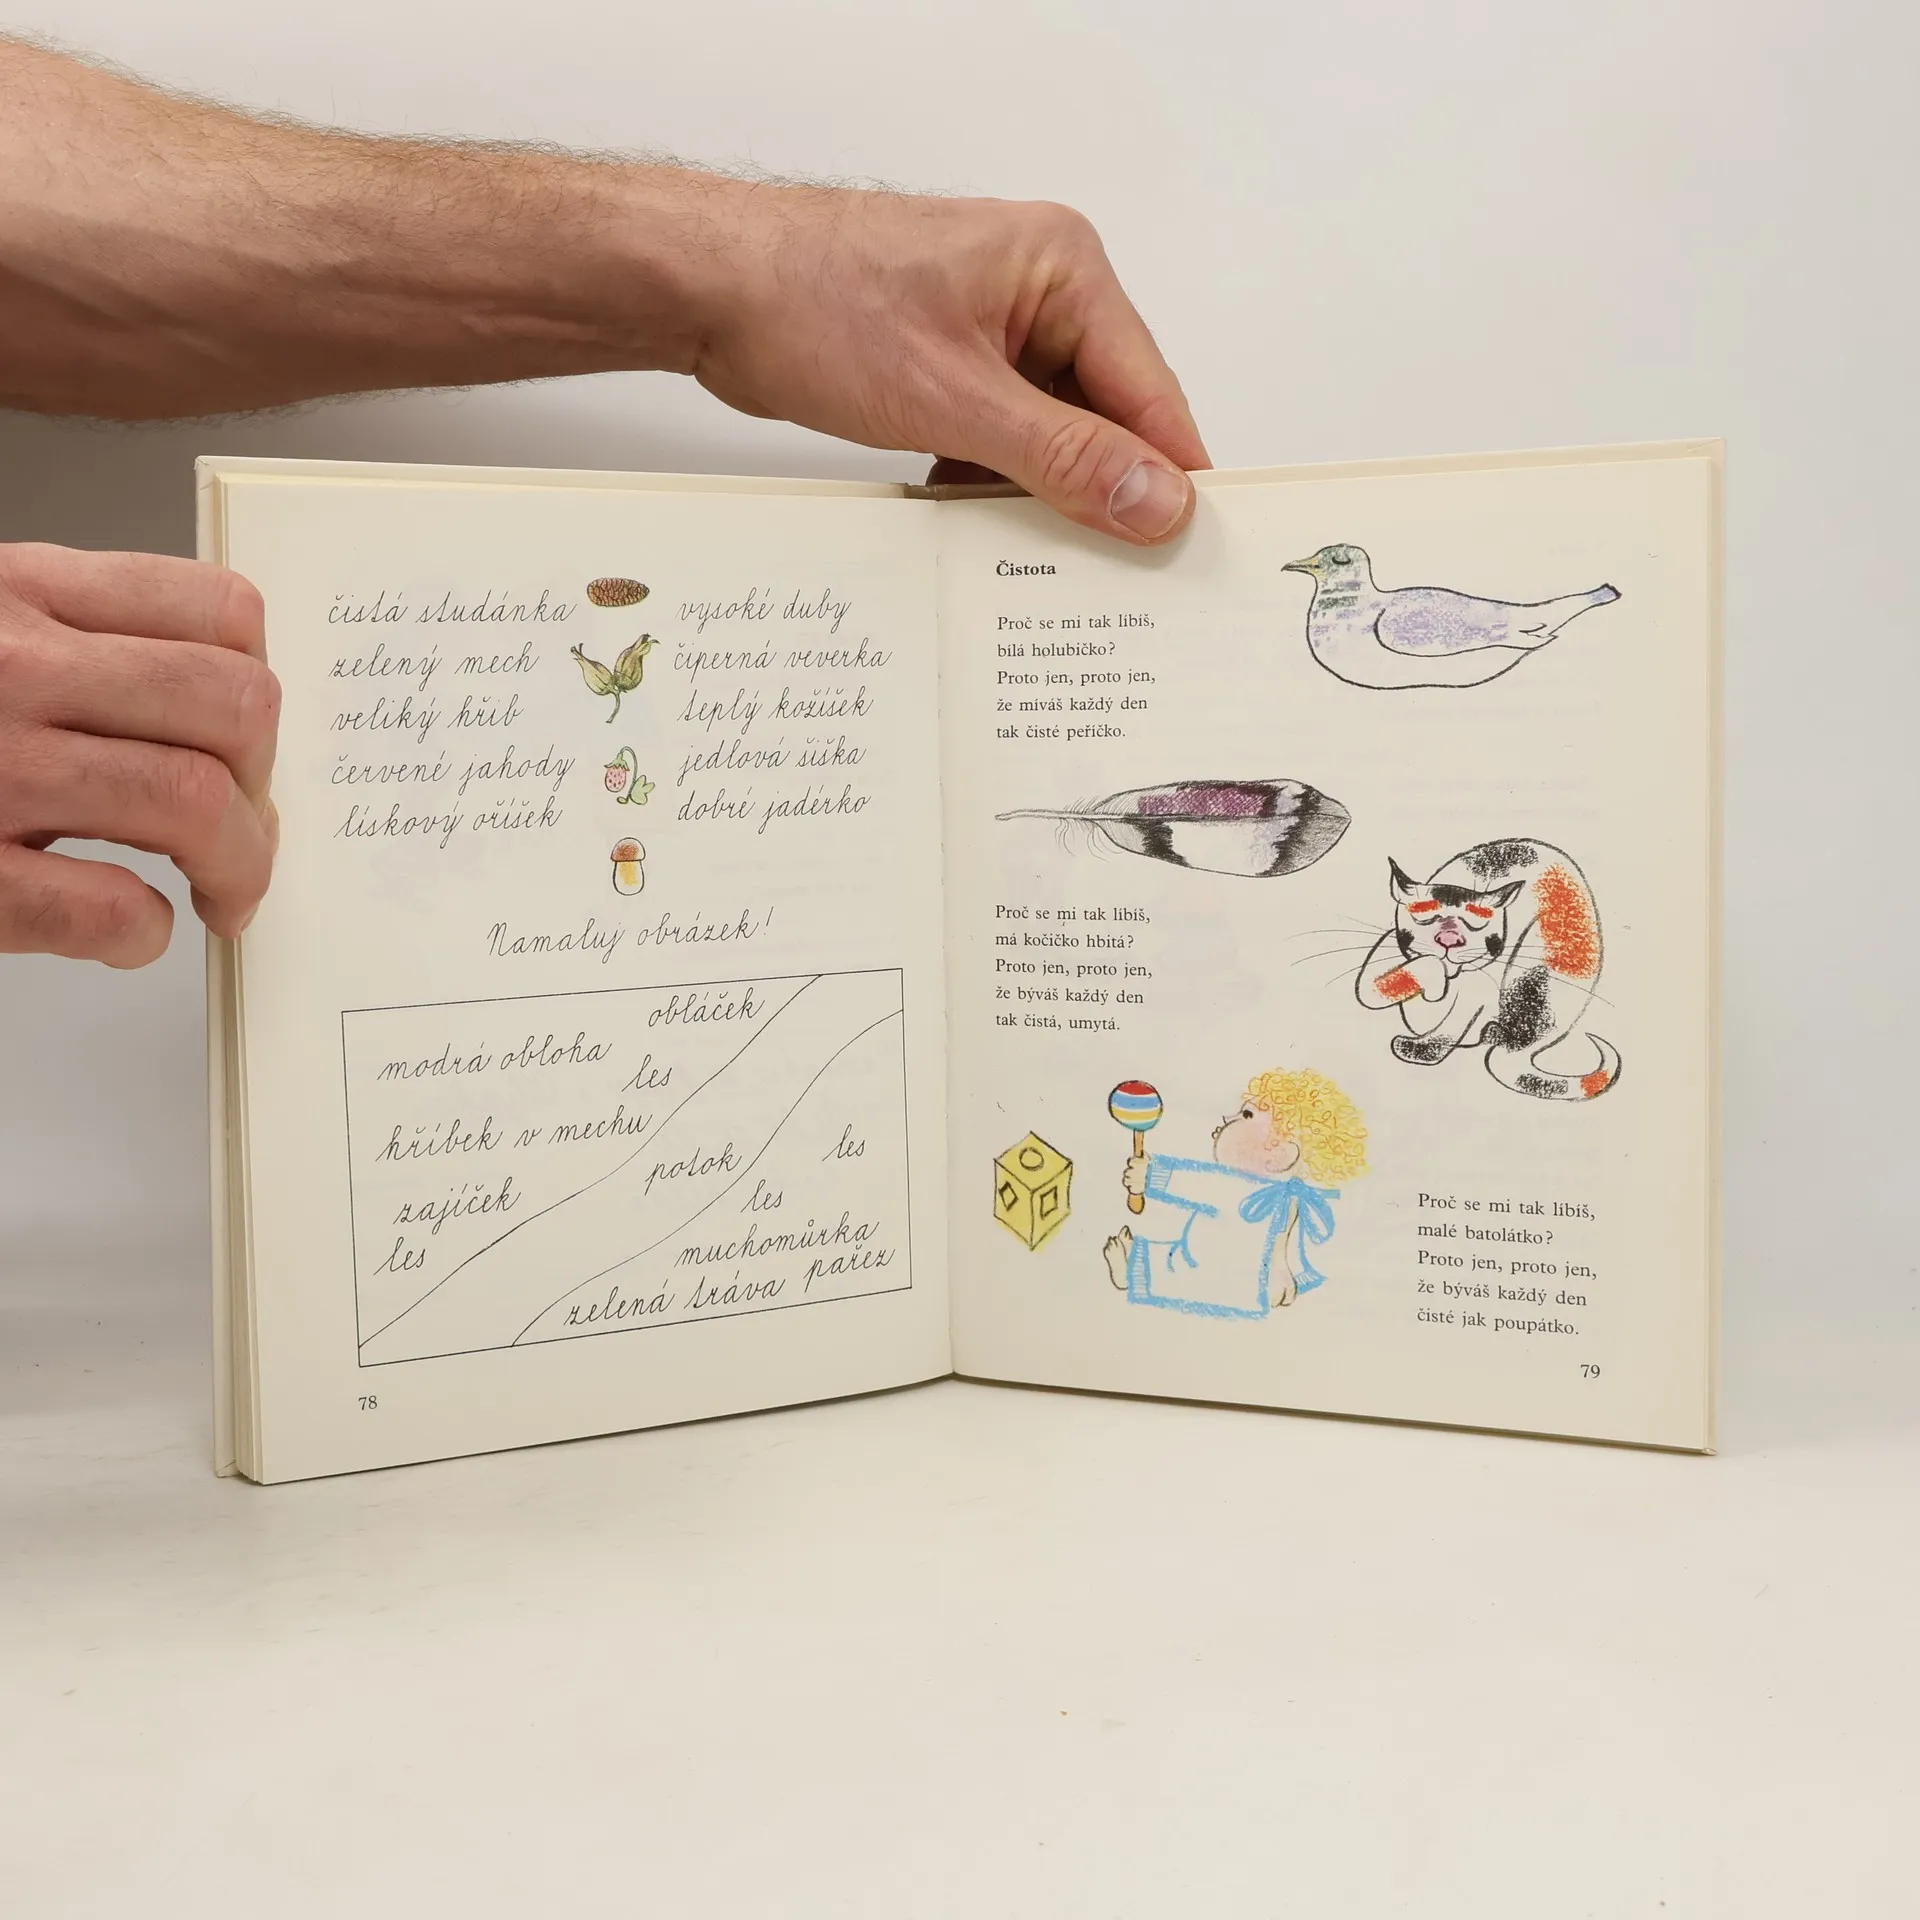 čistá studánka
zelený mech
veliký hřib
červené jahody
lískový oříšek
vysoké duby
čiperná veverka
teplý kožíšek
jedlová šiška
dobré jadérko
Namaluj obrázek!
obláček
modrá obloha
les
hříbek v mechu
potok
les
zajíček
les
les
muchomůrka
zelená tráva pařez
78
Čistota
Proč se mi tak líbíš,
bílá holubičko?
Proto jen, proto jen,
že míváš každý den
tak čisté peříčko.
Proč se mi tak líbíš,
má kočičko hbitá?
Proto jen, proto jen,
že býváš každý den
tak čistá, umytá.
Proč se mi tak líbíš,
malé batolátko?
Proto jen, proto jen,
že býváš každý den
čisté jak poupátko.
79